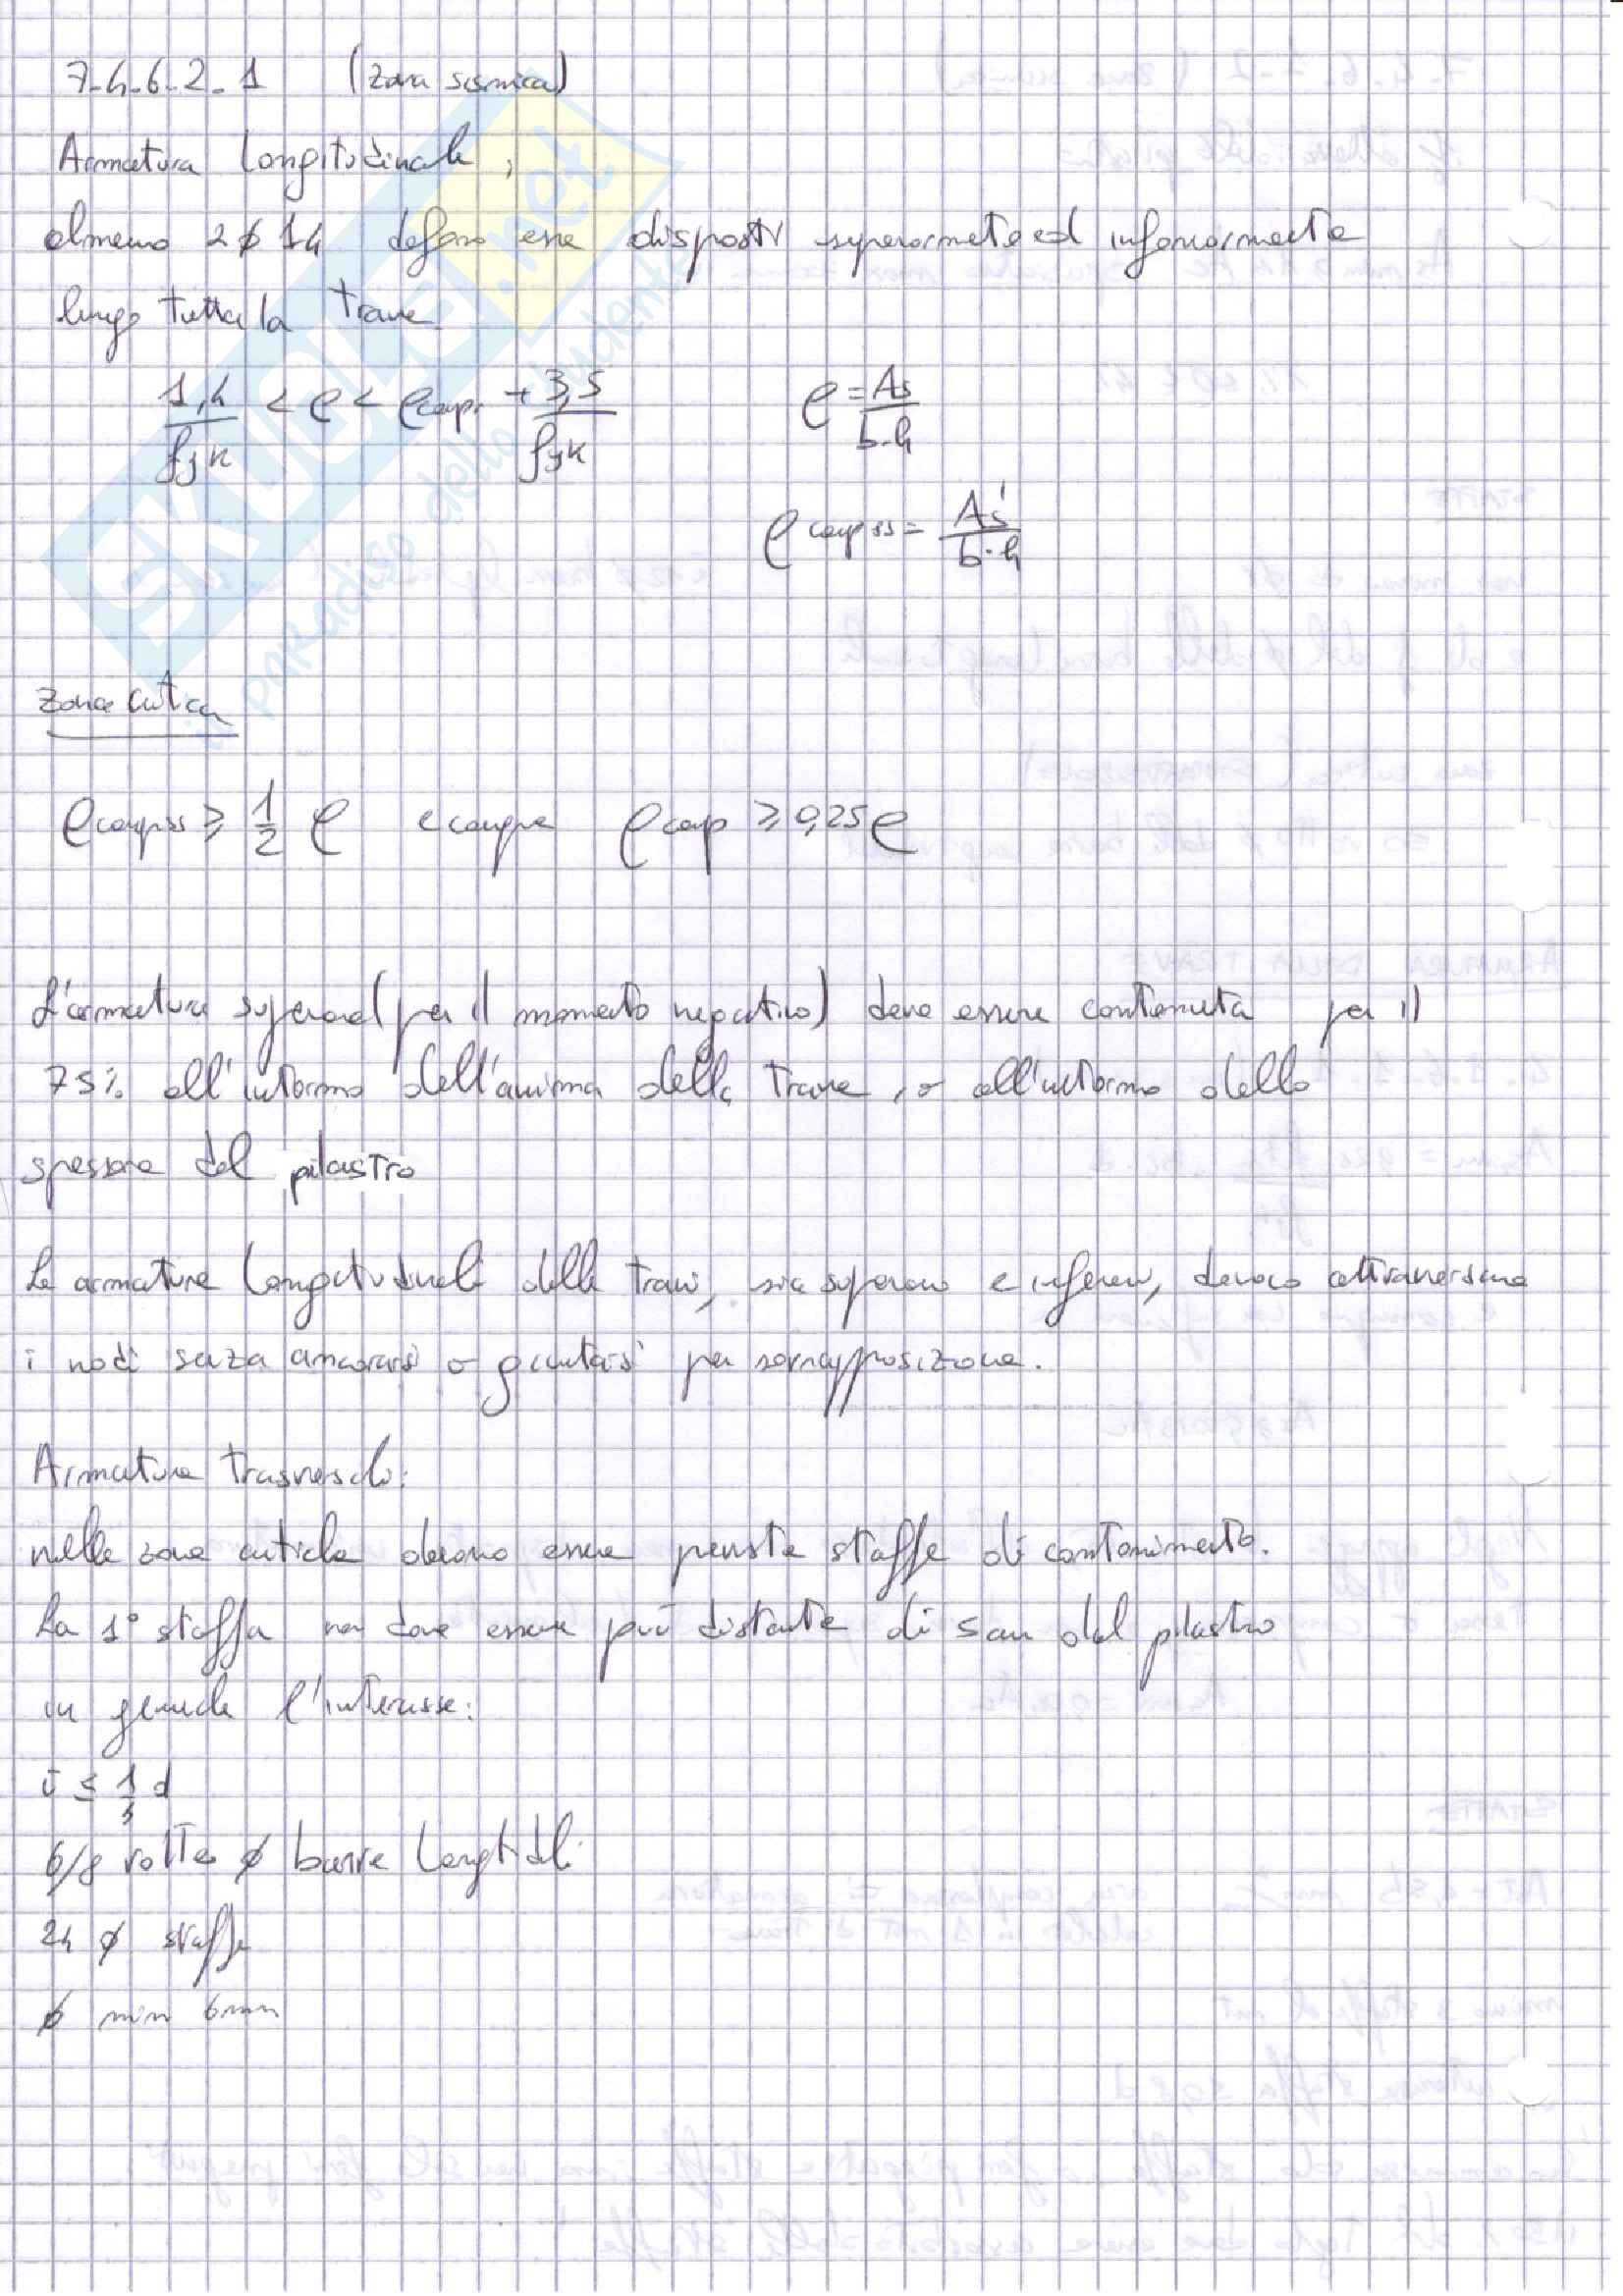 7-4-6-2-1 (zona sismica)
Armatura longitudinale,
almeno 2φ14 disposti superiormente ed inferiormente
lungo tutta la trave
1,4/fyk < ρ < ρcomp. + 3,5/fyk
ρ = As/b·h
ρcompss = As'/b·h
zona critica
ρcompss ≥ 1/2 ρ e comunque ρcomp ≥ 0,25ρ
L'armatura superiore (per il momento negativo) deve essere contenuta per il
75% all'interno dell'anima della trave, o all'interno dello
spessore del pilastro
Le armature longitudinali delle travi, sia superiori e inferiori, devono attraversare
i nodi senza ancorarsi o giuntarsi per sovrapposizione.
Armatura trasversale:
nelle zone critiche devono essere previste staffe di contenimento.
La 1° staffa non deve essere più distante di 5cm dal pilastro
in generale l'interasse:
i ≤ 1/4 d
6/8 volte φ barre longitudinali
24 φ staffe
φ min 6mm
SKUOLA.net
il paradiso dello studente